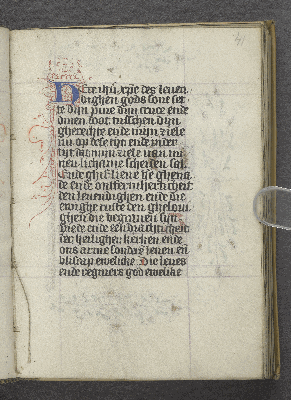 Here ihū xpē des leuen
dighen gods sone set
te dijn pine dijn cruce ende
dinen doot tusschen dijn
gherechte ende mijn ziele
nu op dese tijt ende in der
tijt dat mijn ziele van mi
nen lichame scheiden sal
Ende ghif lieue he ghena
de ende ontfermherticheit
den leuendighen ende die
ewighe ruste den gheloui
ghen die begrauen sijn
vrede ende eendrachticheit
der heiligher kerken ende
ons arme sondaren leuen en
bliscap ewelike Die leues
ende regniers god ewelike